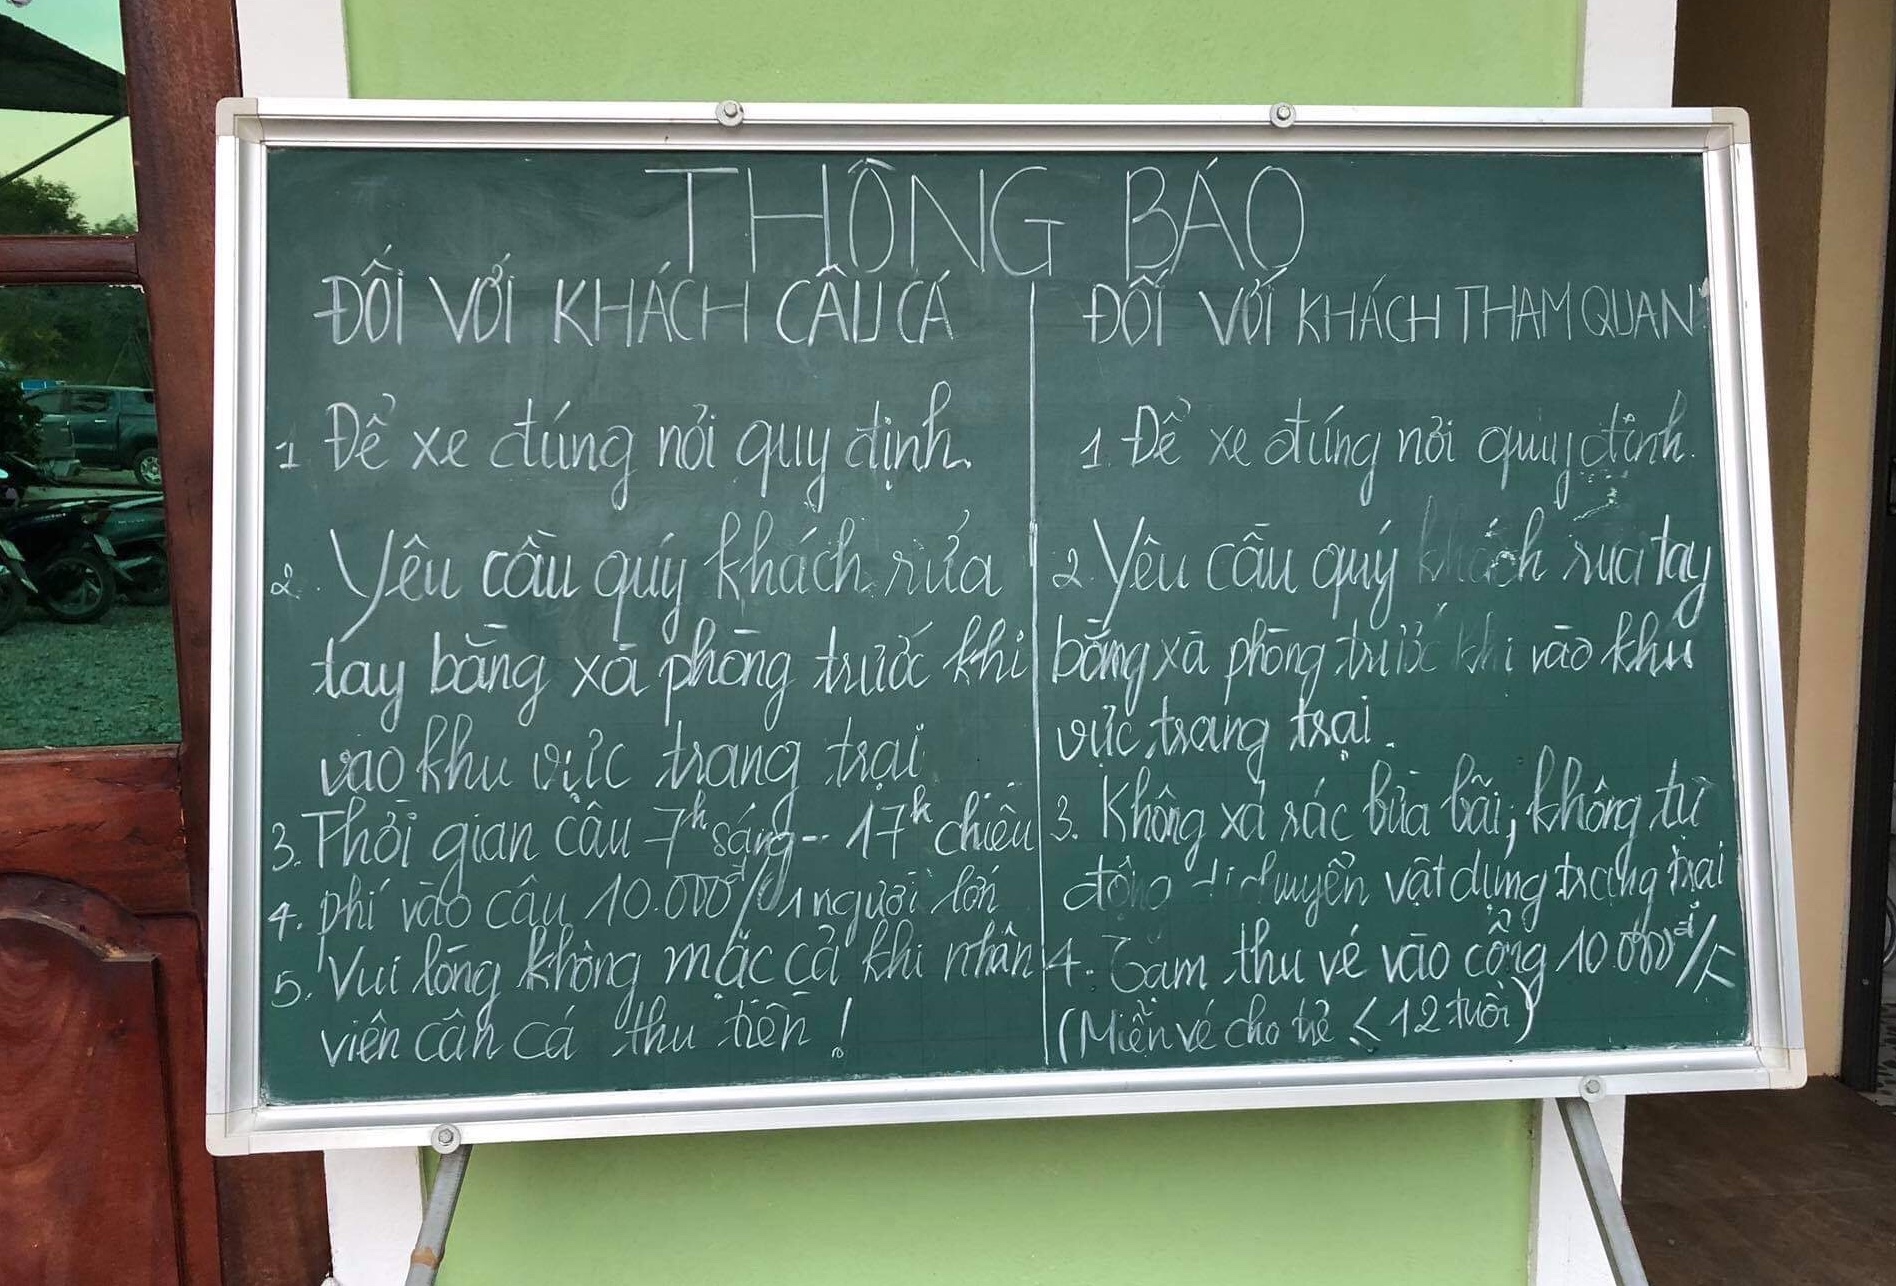 THÔNG BÁO
ĐỐI VỚI KHÁCH CÂU CÁ
1. Để xe đúng nơi quy định.
2. Yêu cầu quý khách rửa
tay bằng xà phòng trước khi
vào khu vực trang trại
3. Thời gian câu 7h sáng - 17h chiều
4. phí vào câu 10.000đ/1 người lớn
5. Vui lòng không mặc cả khi nhân
viên cân cá thu tiền!
ĐỐI VỚI KHÁCH THAM QUAN
1. Để xe đúng nơi quy định.
2. Yêu cầu quý khách rửa tay
bằng xà phòng trước khi vào khu
vực trang trại.
3. Không xả rác bừa bãi; không tự
động di chuyển vật dụng trong trại
4. Tạm thu vé vào cổng 10.000đ/
(Miễn vé cho trẻ ≤ 12 tuổi)